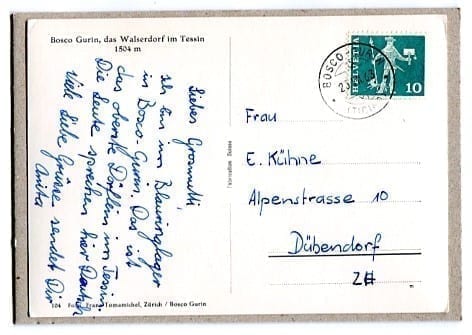 Bosco Gurin, das Walserdorf im Tessin
1504 m
Liebes Grosmutti
Ich bin im Blauringlager
in Bosco-Gurin. Das ist
das oberste Dörflein im Tessin.
Die Leute sprechen hier Deutsch
Viele liebe Grüsse sendet Dir
Anita
104 Franz Tomamichel, Zürich / Bosco Gurin
HELVETIA
10
BOSCO-
(TICINO)
Frau
E. Kühne
Alpenstrasse 10
Dübendorf
ZH